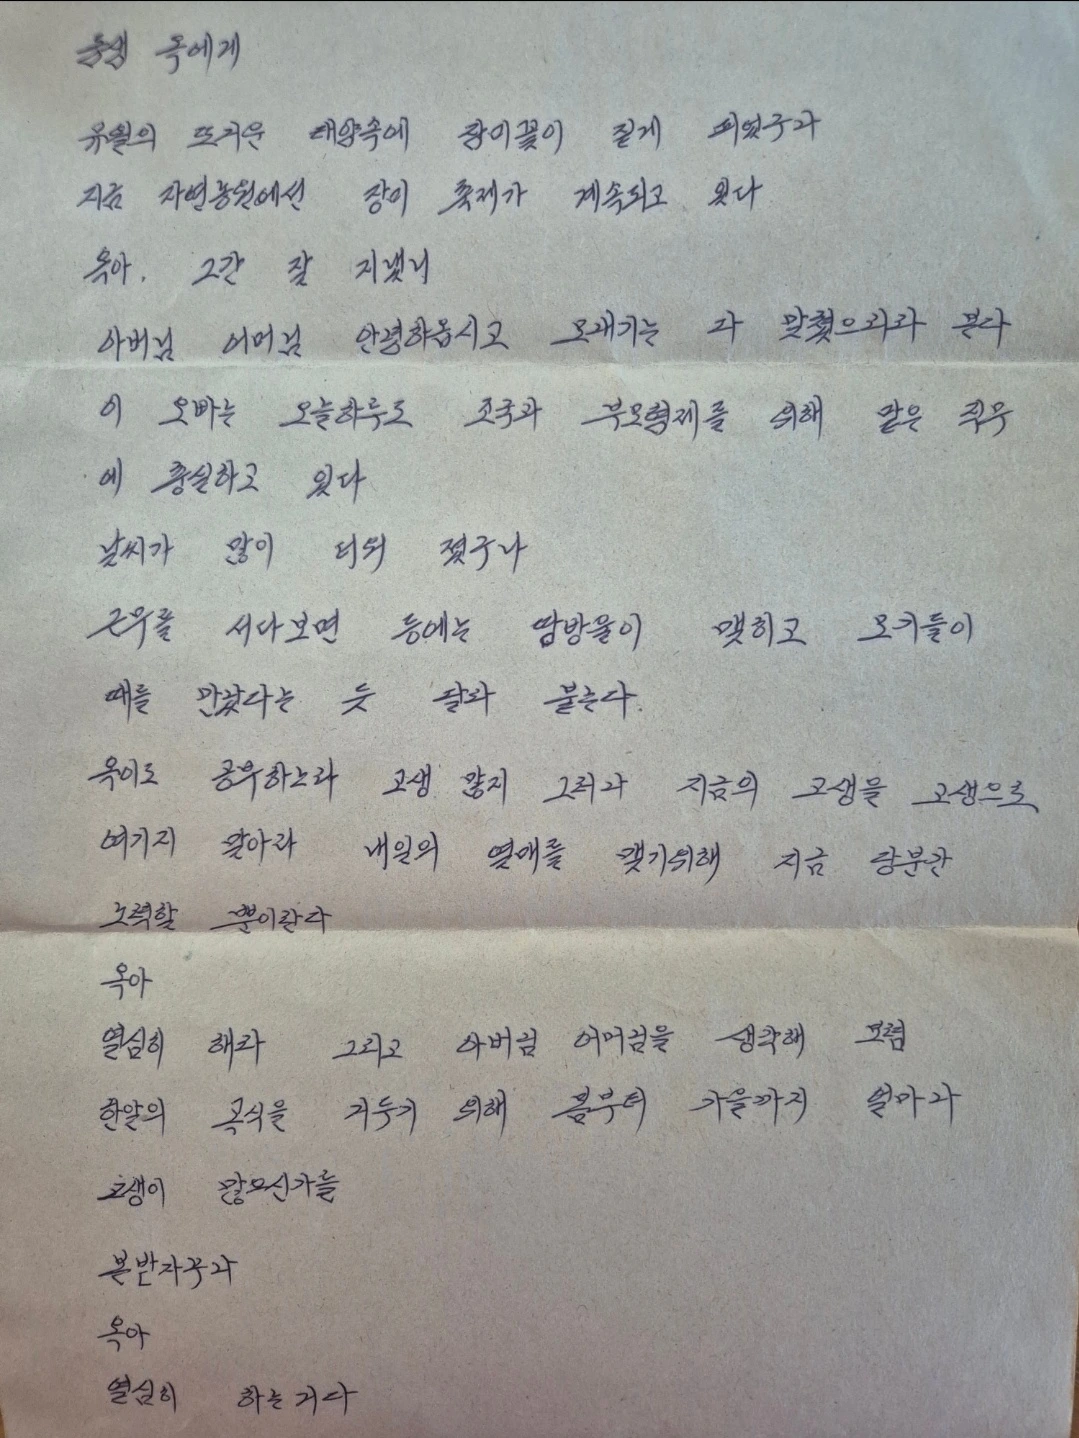 동생 옥에게
유월의 뜨거운 태양속에 장미꽃이 짙게 피었구나
지금 자연농원에선 장미 축제가 계속되고 있다
옥아. 그간 잘 지냈니
아버님 어머님 안녕하옵시고 모내기는 다 맞췄으리라 본다
이 오빠는 오늘하루도 조국과 부모형제를 위해 맡은 직무
에 충실하고 있다
날씨가 많이 더워 졌구나
근무를 서다보면 등에는 땀방울이 맺히고 모기들이
때를 만났다는 듯 달라 붙는다.
옥이도 공부하느라 고생 많지 그러나 지금의 고생을 고생으로
여기지 말아라 내일의 열매를 맺기위해 지금 당분간
노력할 뿐이란다
옥아
열심히 해라 그리고 아버님 어머님을 생각해 보렴
한알의 곡식을 거두기 위해 봄부터 가을까지 얼마나
고생이 많으신가를
본받자꾸나
옥아
열심히 하는거다